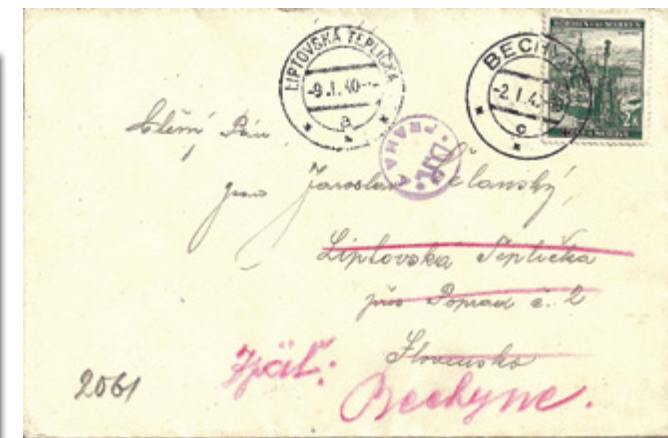 LIPTOVSKÁ TEPLIČKA
-9.I.40
a
BECHYNĚ
-2.I.4
c
PRAHA
Ctěný Pán
pan Jaroslav
Liptovská Teplička
pře Poprad č. 2
Slovensko
Zpäť:
Bechyne.
2061